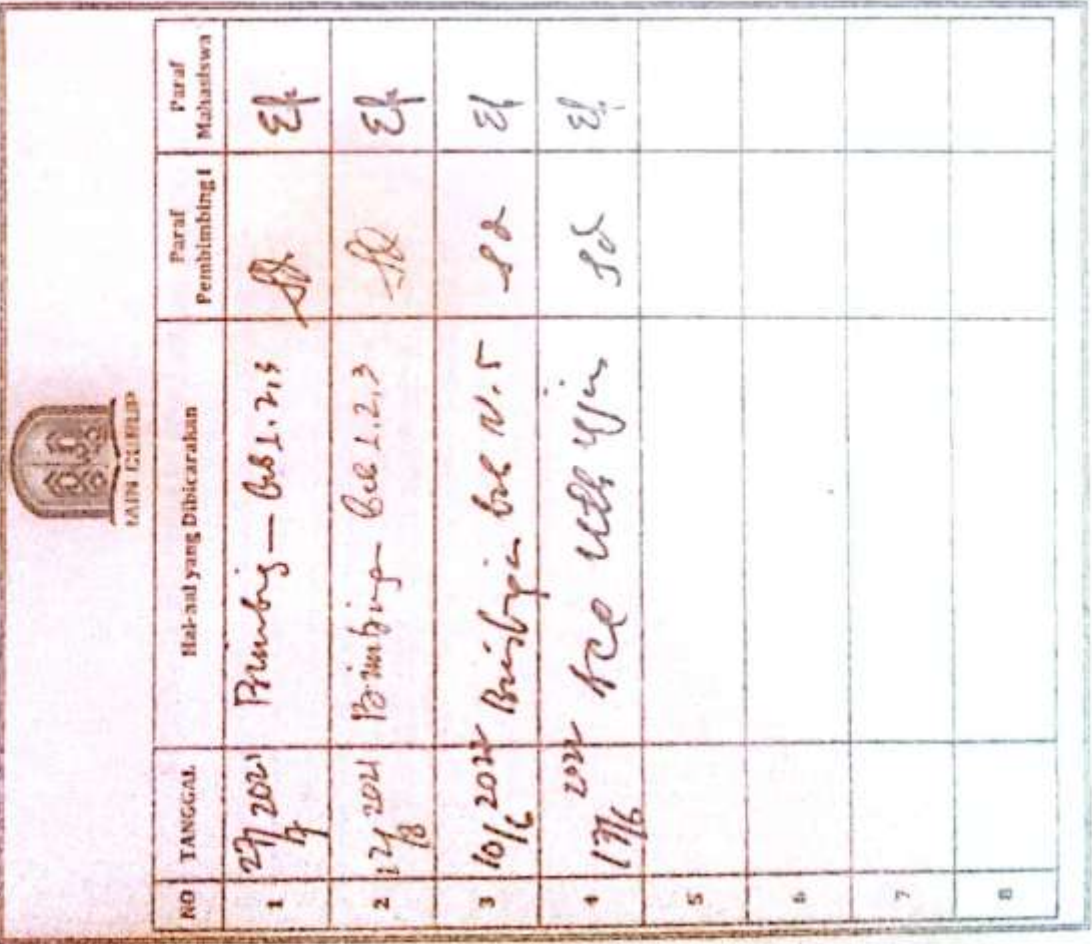 IAIN CURUP
NO TANGGAL Hal-hal yang Dibicarakan Paraf Pembimbing I Paraf Mahasiswa
1 2021 Bab 1, 2, 3
2 2021 Bimbingan Bab 1, 2, 3
3 10/6 2022 Bimbingan Bab IV. 5
4 17/6 2022 Acc Utk Ujian
5
6
7
8